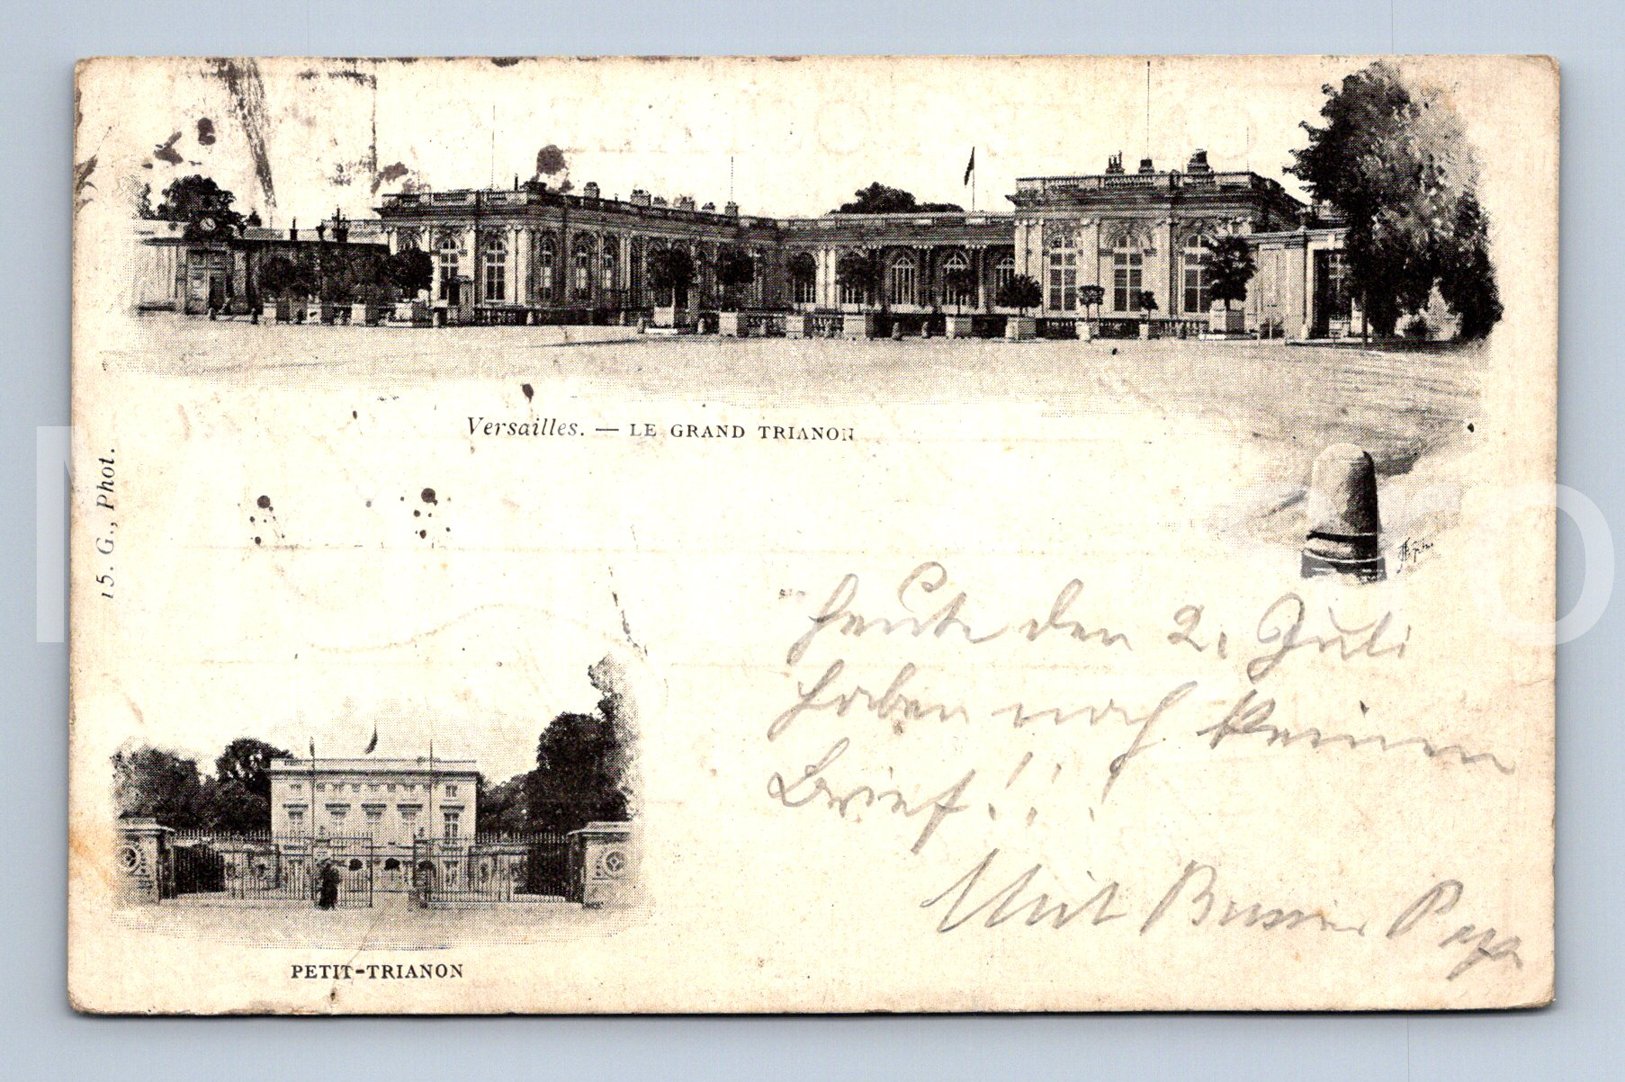 Versailles. — LE GRAND TRIANON
15. G., Phot.
Heute den 2. Juli
haben noch keinen
Brief!!!
Mit Bussi Papa
PETIT-TRIANON